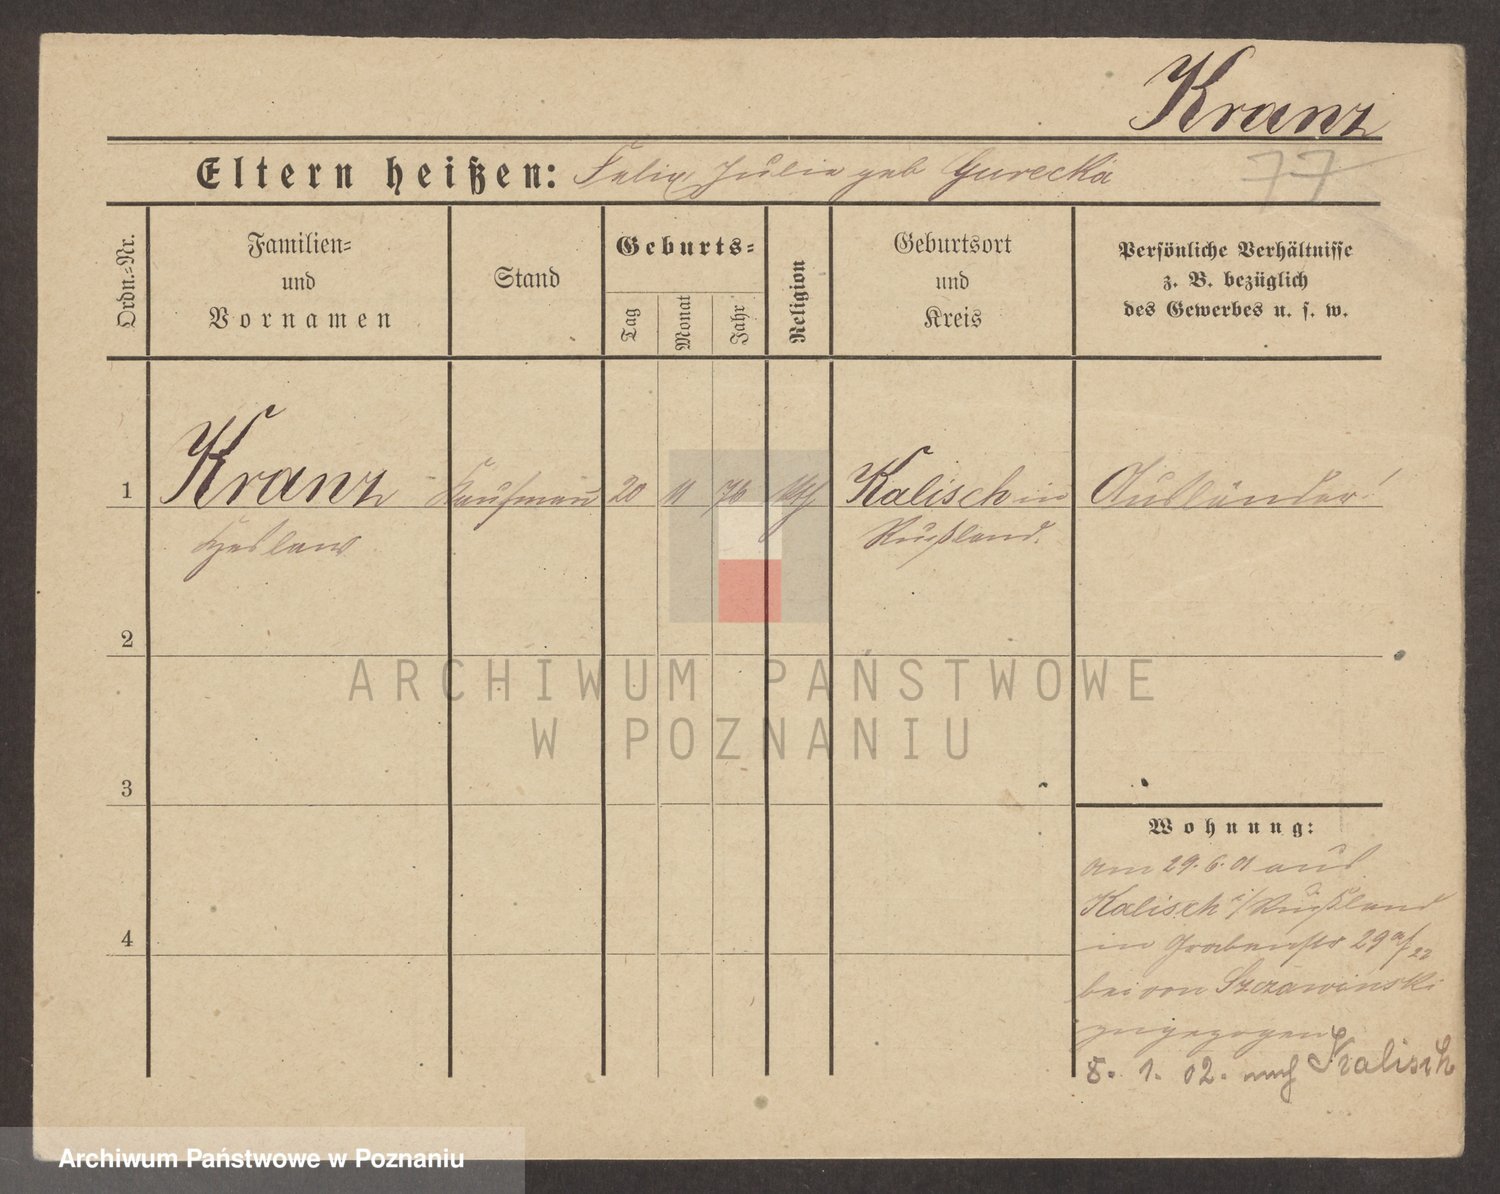 Kranz
Eltern heißen: Felix Julie geb Gurecka
77
Ordn.=Nr.
Familien=
und
Vornamen
Stand
Geburts=
Tag
Monat
Jahr
Religion
Geburtsort
und
Kreis
Persönliche Verhältnisse
z. B. bezüglich
des Gewerbes u. s. w.
1 Kranz Kaufmann 20 11 76 Kalisch in Ausländer!
Rußland.
2
ARCHIWUM PAŃSTWOWE
W POZNANIU
3
Wohnung:
am 29.6.01 aus
Kalisch i/Rußland
4
in Grabenstr 29
bei von Szczawinski
zugezogen
8. 1. 02. nach Kalisch
Archiwum Państwowe w Poznaniu